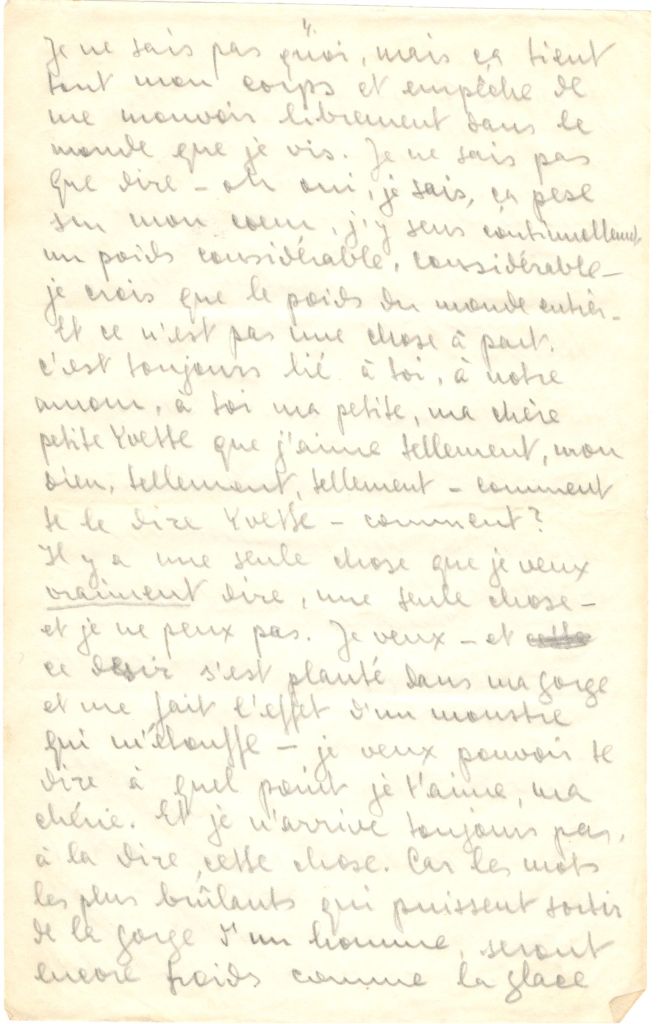 Je ne sais pas quoi, mais ça tient
tout mon corps et empêche de
me mouvoir librement dans le
monde que je vis. Je ne sais pas
que dire – oh oui, je sais, ça pese
sur mon coeur, j'y sens continuellement,
un poids considérable, considérable –
je crois que le poids du monde entier –
Et ce n'est pas une chose à part.
c'est toujours lié à toi, à notre
amour, à toi ma petite, ma chère
petite Yvette que j'aime tellement, mon
dieu, tellement, tellement – comment
te le dire Yvette – comment?
Il y a une seule chose que je veux
vraiment dire, une seule chose –
et je ne peux pas. Je veux – et cette
ce desir s'est planté dans ma gorge
et me fait l'effet d'un monstre
qui m'étouffe – je veux pouvoir te
dire à quel point je t'aime, ma
chérie. Et je n'arrive toujours pas,
à la dire cette chose. Car les mots
les plus brûlants qui puissent sortir
de la gorge d'un homme, seront
encore froids comme la glace